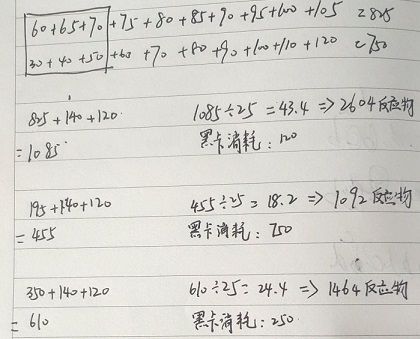 60+65+70+75+80+85+90+95+100+105 =825
30+40+50+60+70+80+90+100+110+120 =750
825+140+120 1085÷25=43.4 => 2604反应物
=1085 黑卡消耗:120
195+140+120 455÷25=18.2 => 1092反应物
=455 黑卡消耗:750
350+140+120 610÷25=24.4 => 1464反应物
=610 黑卡消耗:250